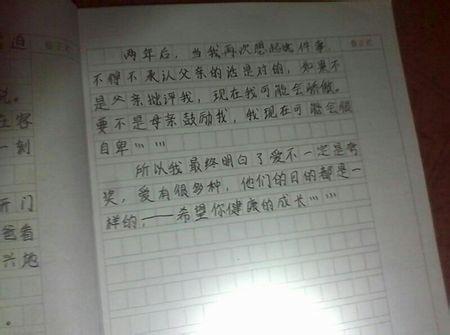 迫
说。
在客
一刻
开门
爸看
兴地
两年后，当我再次想起这件事，
不得不承认父亲的话是对的，如果不
是父亲批评我，现在我可能会骄傲。
要不是母亲鼓励我，我现在可能会很
自卑……
所以我最终明白了爱不一定是夸
奖，爱有很多种，他们的目的都是一
样的，——希望你健康的成长……